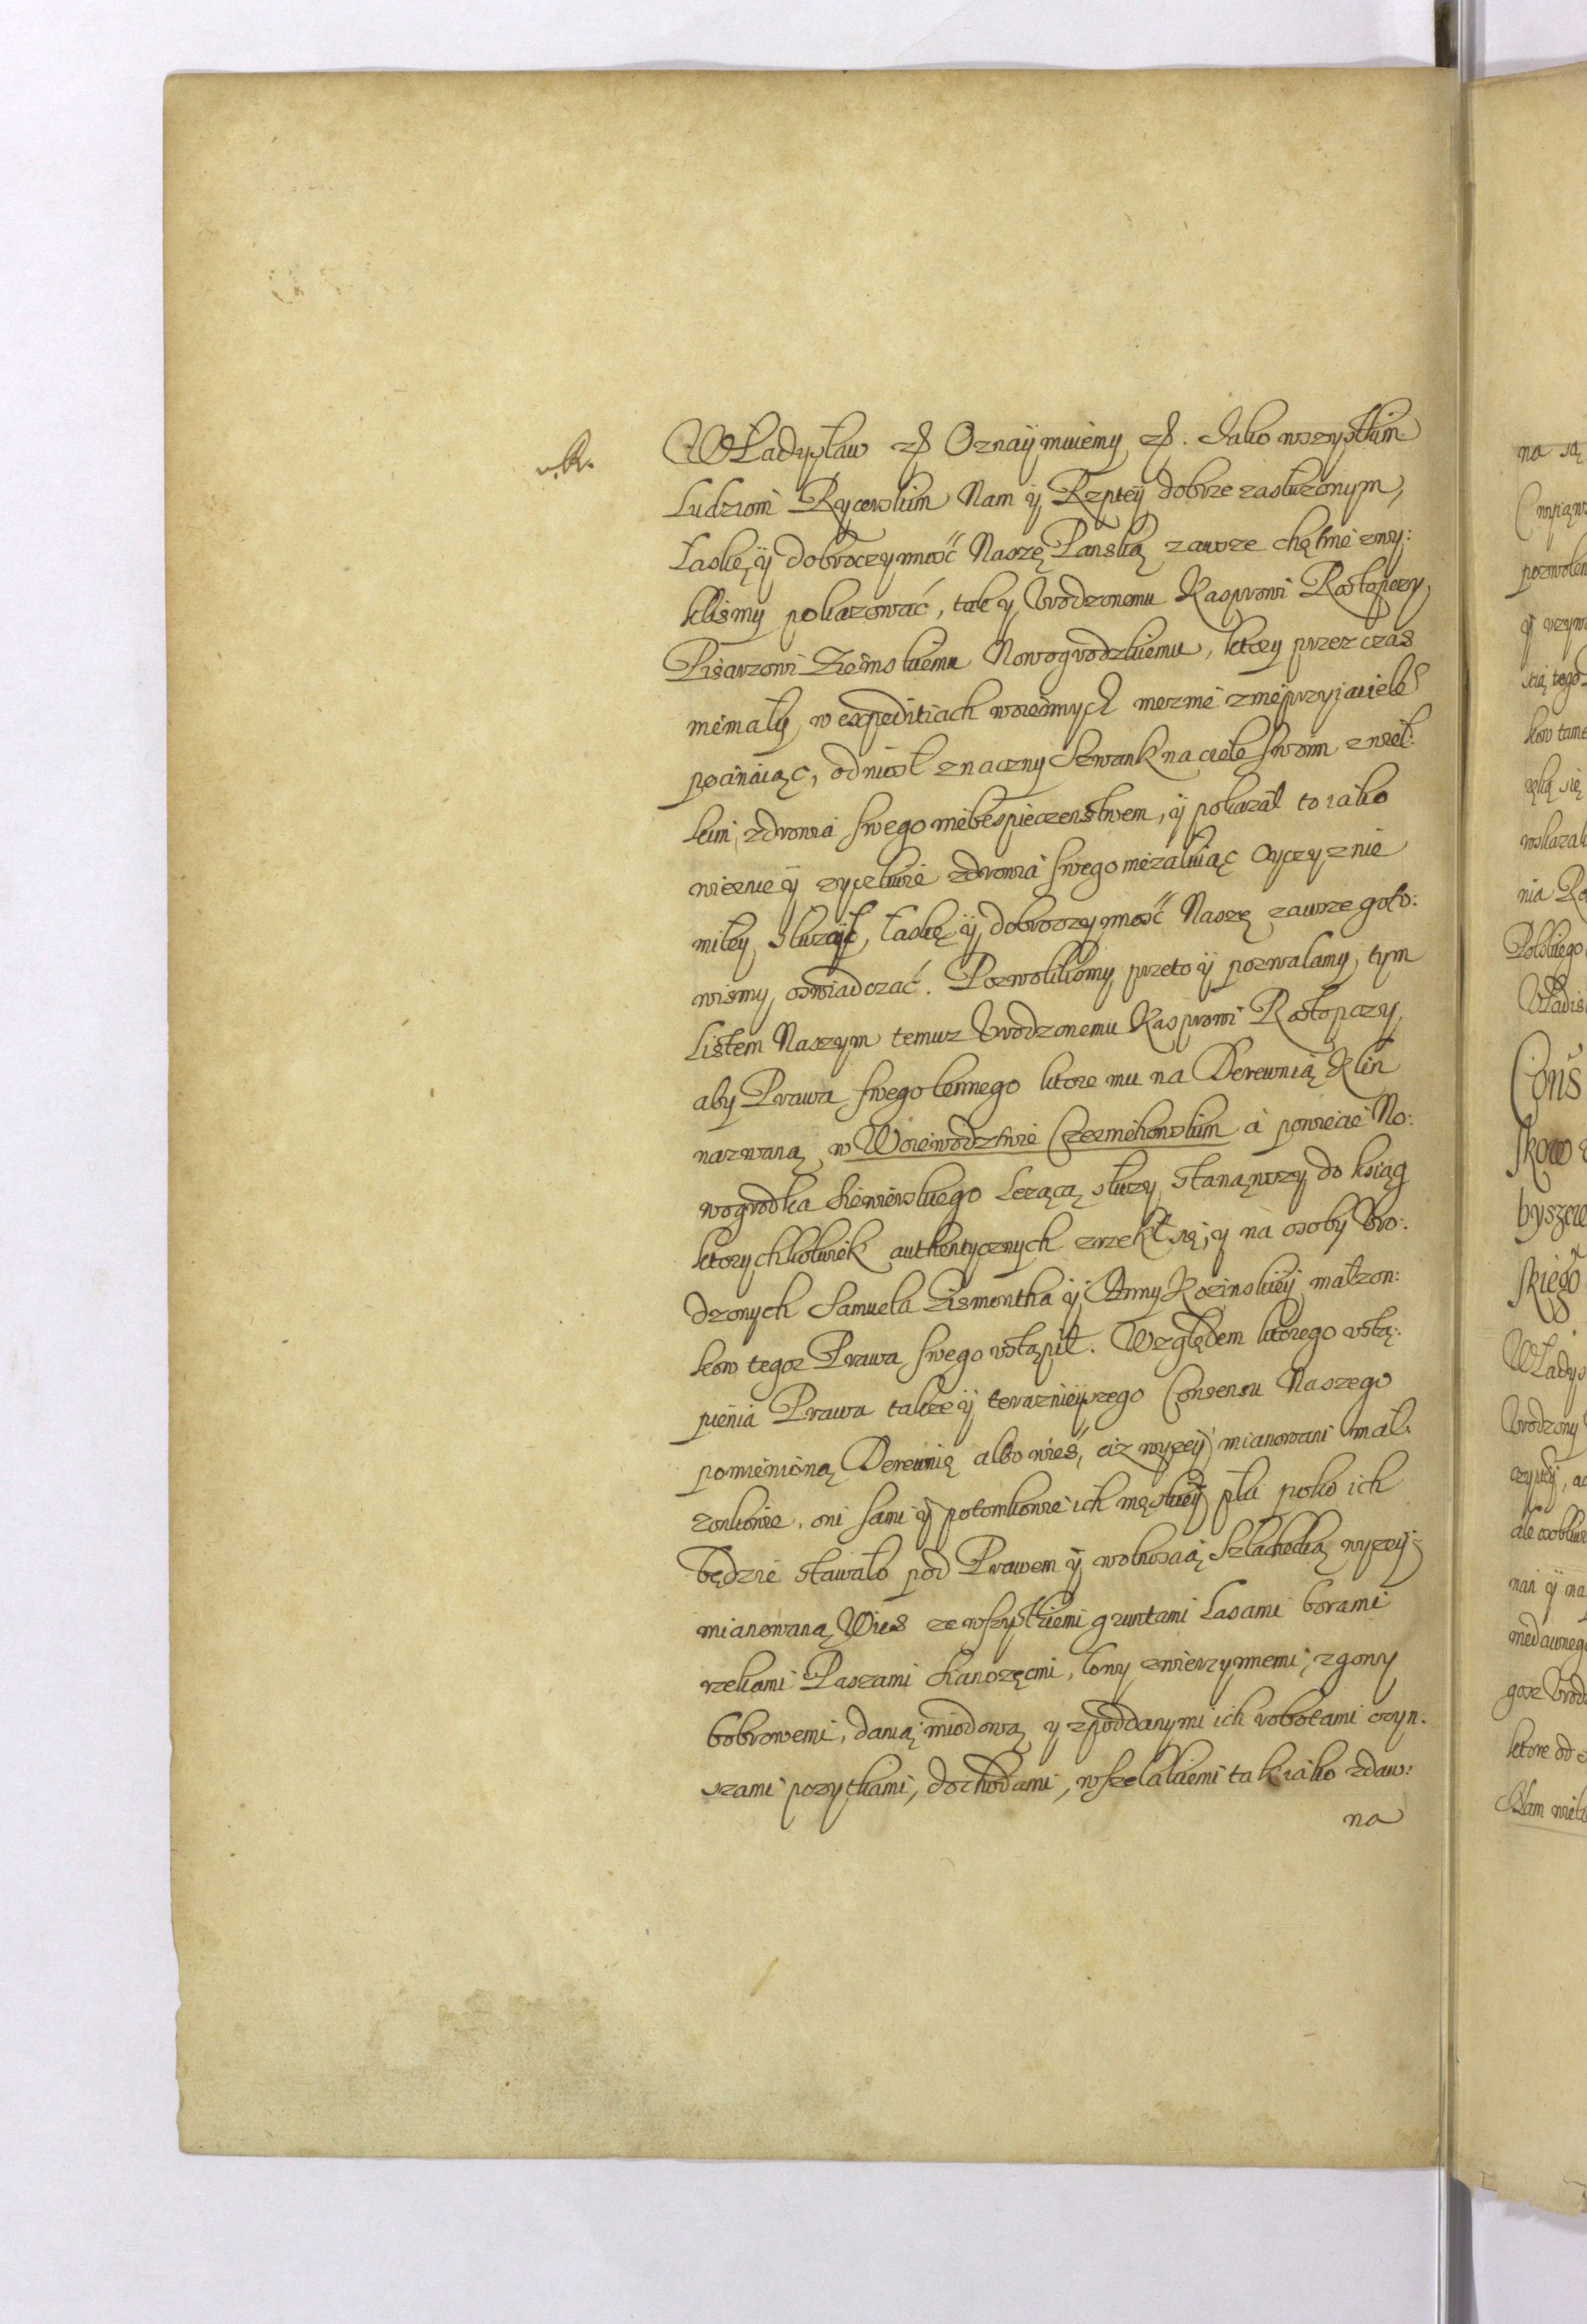 WŁadysław etc Oznaÿmuiemy etc. Iako wszystkim
Ludziom Rycerskim Nam ÿ Rzpteÿ dobrze zasłużonym,
Łaskę ÿ dobroczynność Naszę Panską zawsze chętnie zwy:
kliśmy pokazować, tak y Vrodzonemu Kasprowi Rostopczy
Pisarzowi Ziemskiemu Nowogrodzkiemu, ktory przez czas
niemały w expeditiach woiennych mezniе z nieprzyiaciele
poczinaiąc, odniosł znaczny szwank na ciele swoim z wiel:
kim zdrowia swego niebespieczenstwem, ÿ pokazał to iako
wiernie ÿ zyczliwie zdrowia swego nieżałuiąc oyczyznie
miłey służył, łaskę ÿ dobroczynność Naszę zawsze goto:
wismy oswiadczać. Pozwolilismy przeto ÿ pozwalamy tym
Listem Naszym temuz Vrodzonemu Kasprowi Rostopczy,
aby Prawa swego lennego ktore mu na Derewnią Klin
nazwaną w Woiewodztwie Czerniehowskim a powiecie No:
wogrodka Siewierskiego Leżącą służy, stanąwszy do ksiąg
ktorychkolwiek authentycznych zrzekł się, y na osoby Vro:
dzonych Samuela Zismontha ÿ Anny Kozinskieÿ małzon:
kow tegoz Prawa swego vstąpił. Względem ktorego vstą:
pienia Prawa także ÿ teraznieÿszego Consensu Naszego
pomienioną Derewnią albo wieś, ciz wyzeÿ mianowani mał:
zonkowie, oni sami ÿ potomkowie ich męskieÿ płci poko ich
będzie stawało pod Prawem ÿ wolnoscią Szlachecką wyzeÿ
mianowaną Wies ze wszystkiemi gruntami Lasami borami
rzekami Paszami sianozęcmi, łowy zwierzynnemi, zgony
bobrowemi, danią miodową y z poddanymi ich robotami czyn:
szami pozytkami, dochodami, wszelakiemi tak iako zdaw:
na